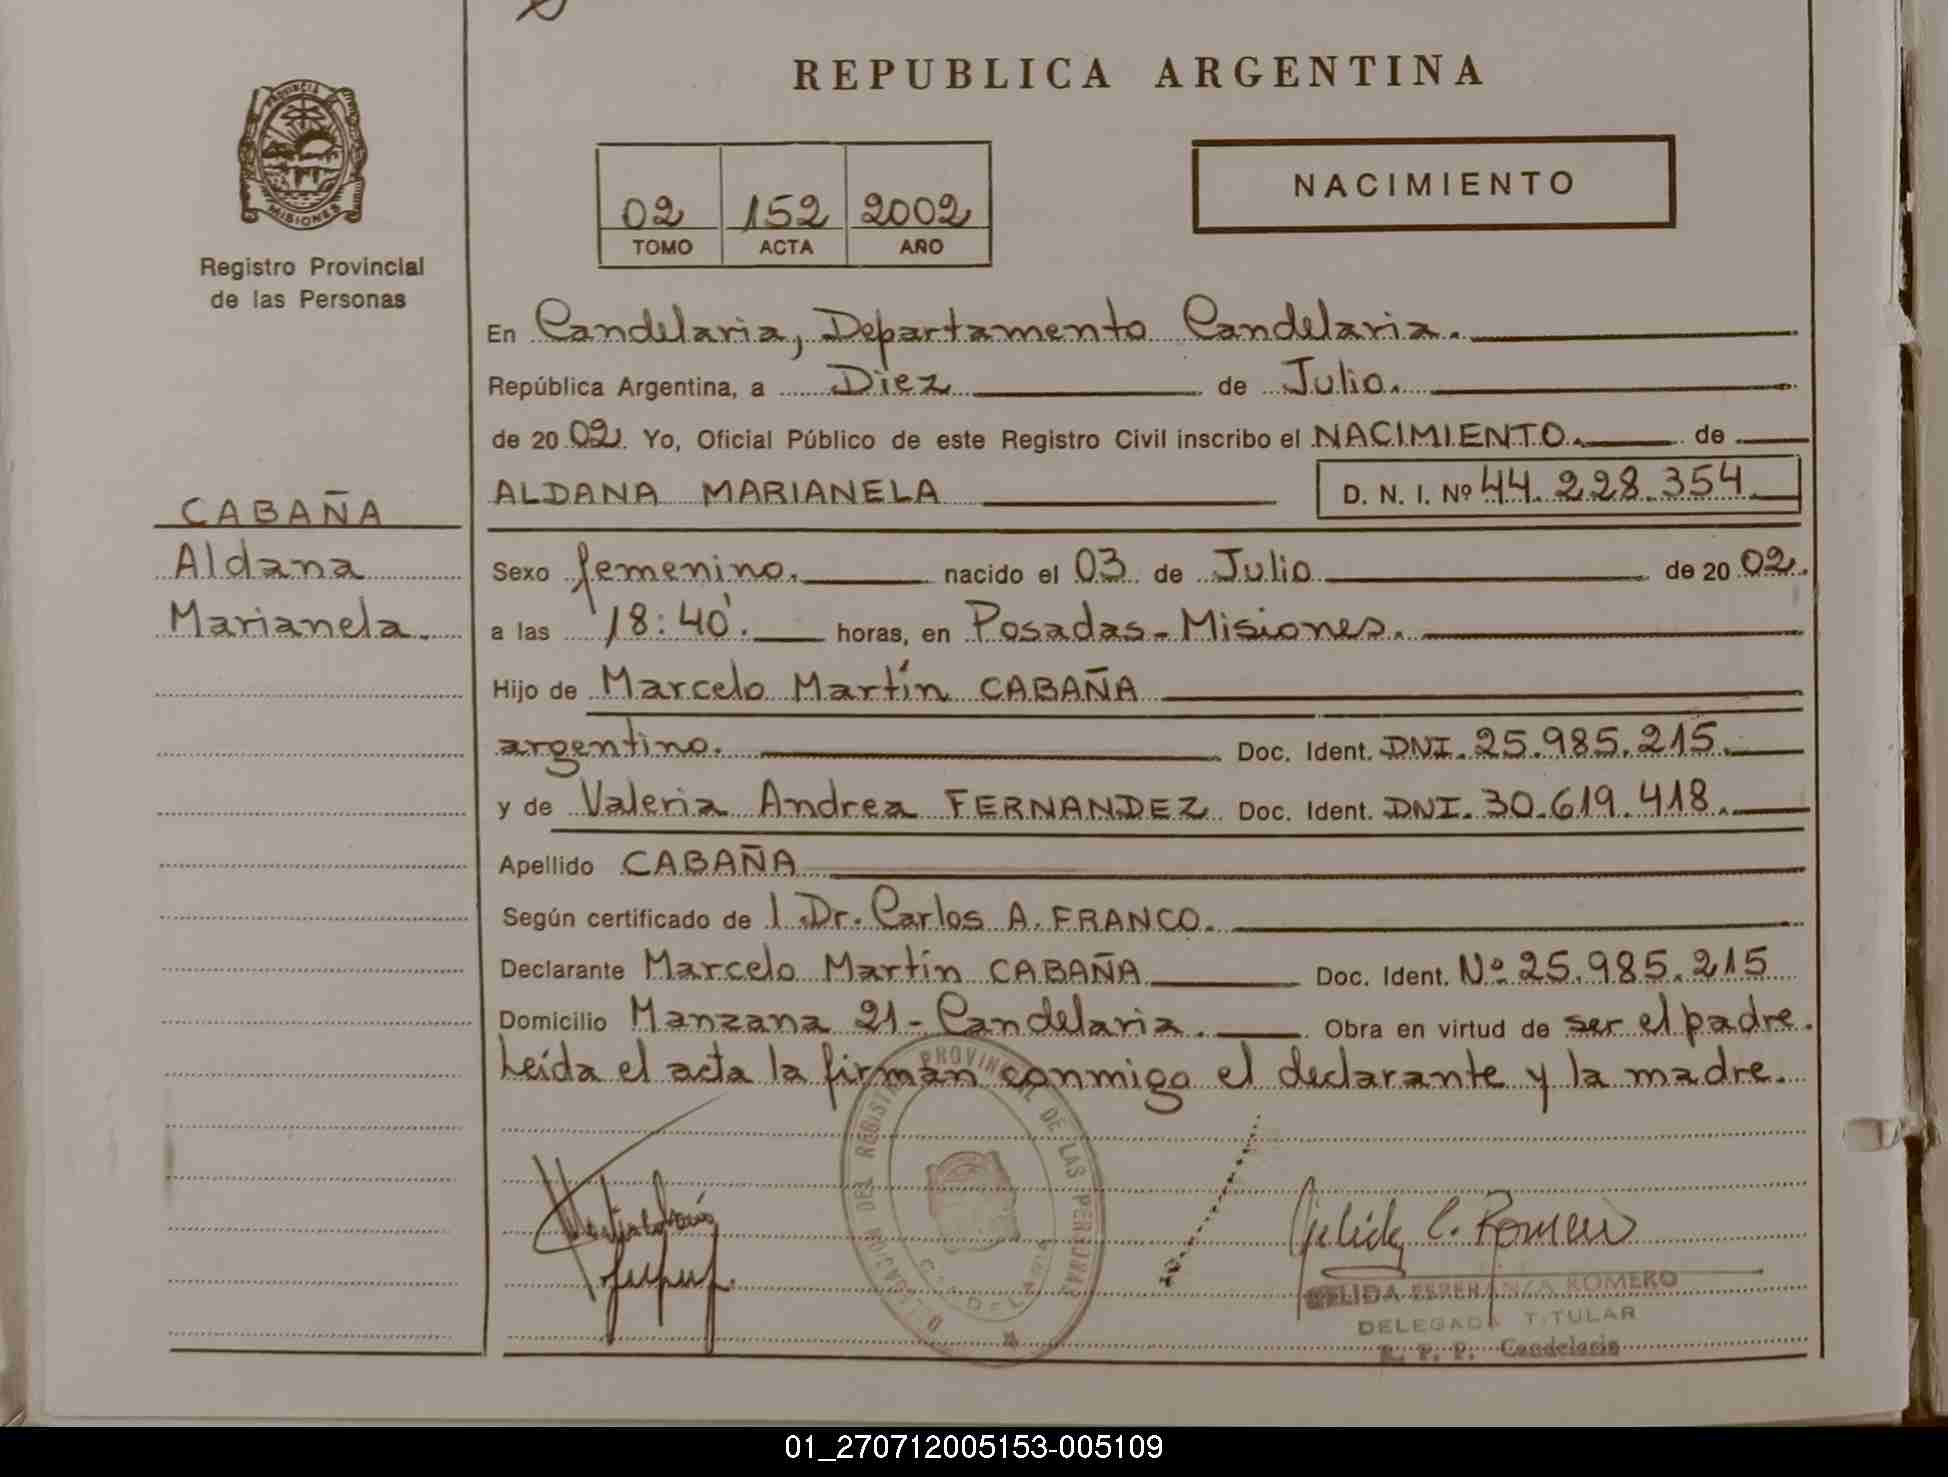 REPUBLICA ARGENTINA
PROVINCIA DE
MISIONES
Registro Provincial
de las Personas
02 152 2002
TOMO ACTA AÑO
NACIMIENTO
En Candelaria, Departamento Candelaria.
República Argentina, a Diez de Julio.
de 20 02. Yo, Oficial Público de este Registro Civil inscribo el NACIMIENTO. de
ALDANA MARIANELA D. N. I. Nº 44.228.354
CABAÑA
Aldana
Marianela.
Sexo femenino. nacido el 03 de Julio de 20 02.
a las 18:40'. horas, en Posadas - Misiones.
Hijo de Marcelo Martín CABAÑA
argentino. Doc. Ident. DNI. 25.985.215.
y de Valeria Andrea FERNANDEZ Doc. Ident. DNI. 30.619.418.
Apellido CABAÑA
Según certificado de l Dr. Carlos A. FRANCO.
Declarante Marcelo Martín CABAÑA Doc. Ident. Nº 25.985.215
Domicilio Manzana 21 - Candelaria. Obra en virtud de ser el padre.
Leída el acta la firman conmigo el declarante y la madre.
DELEGACION DEL REGISTRO PROVINCIAL DE LAS PERSONAS
CANDELARIA
C. Romero
ESPERANZA ROMERO
DELEGADA TITULAR
R. P. P. Candelaria
01_270712005153-005109